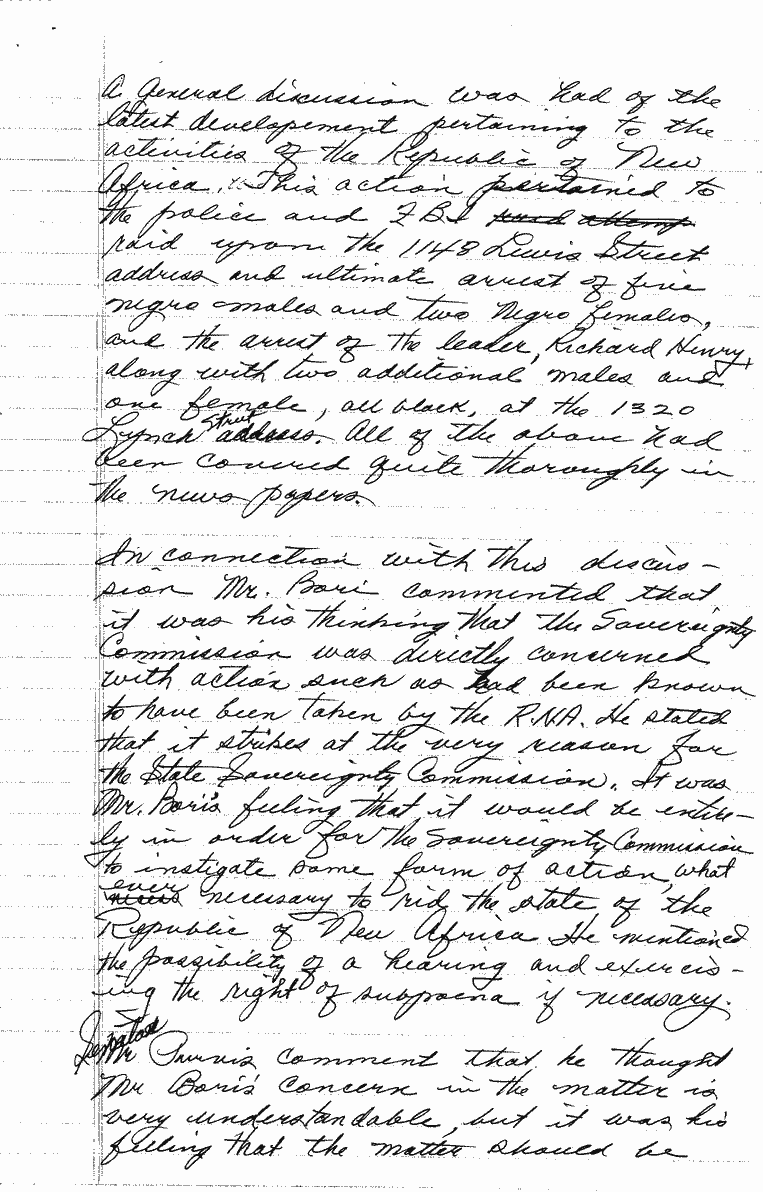 A General discussion was had of the
latest developement pertaining to the
activities of the Republic of New
Africa. This action pertained to
the police and F B I raid attemp
raid upon the 1148 Lewis Street
address and ultimate arrest of five
negro males and two Negro females,
and the arrest of the leader, Richard Henry,
along with two additional males and
one female, all black, at the 1320
Lynch Street address. All of the above had
been covered quite thoroughly in
the news papers.
In connection with this discus-
sion Mr. Bori commented that
it was his thinking that the Sovereignty
Commission was directly concerned
with action such as had been known
to have been taken by the R.N.A. He stated
that it strikes at the very reason for
the State Sovereignty Commission. It was
Mr. Bori's feeling that it would be entire-
ly in order for the Sovereignty Commission
to instigate some form of action, what
ever necessary to rid the state of the
Republic of New Africa He mentioned
the possibility of a hearing and exercis-
ing the right of subpoena if necessary.
Senator
Mr Purvis comment that he thought
Mr Bori's concern in the matter is
very understandable, but it was his
feeling that the matter should be